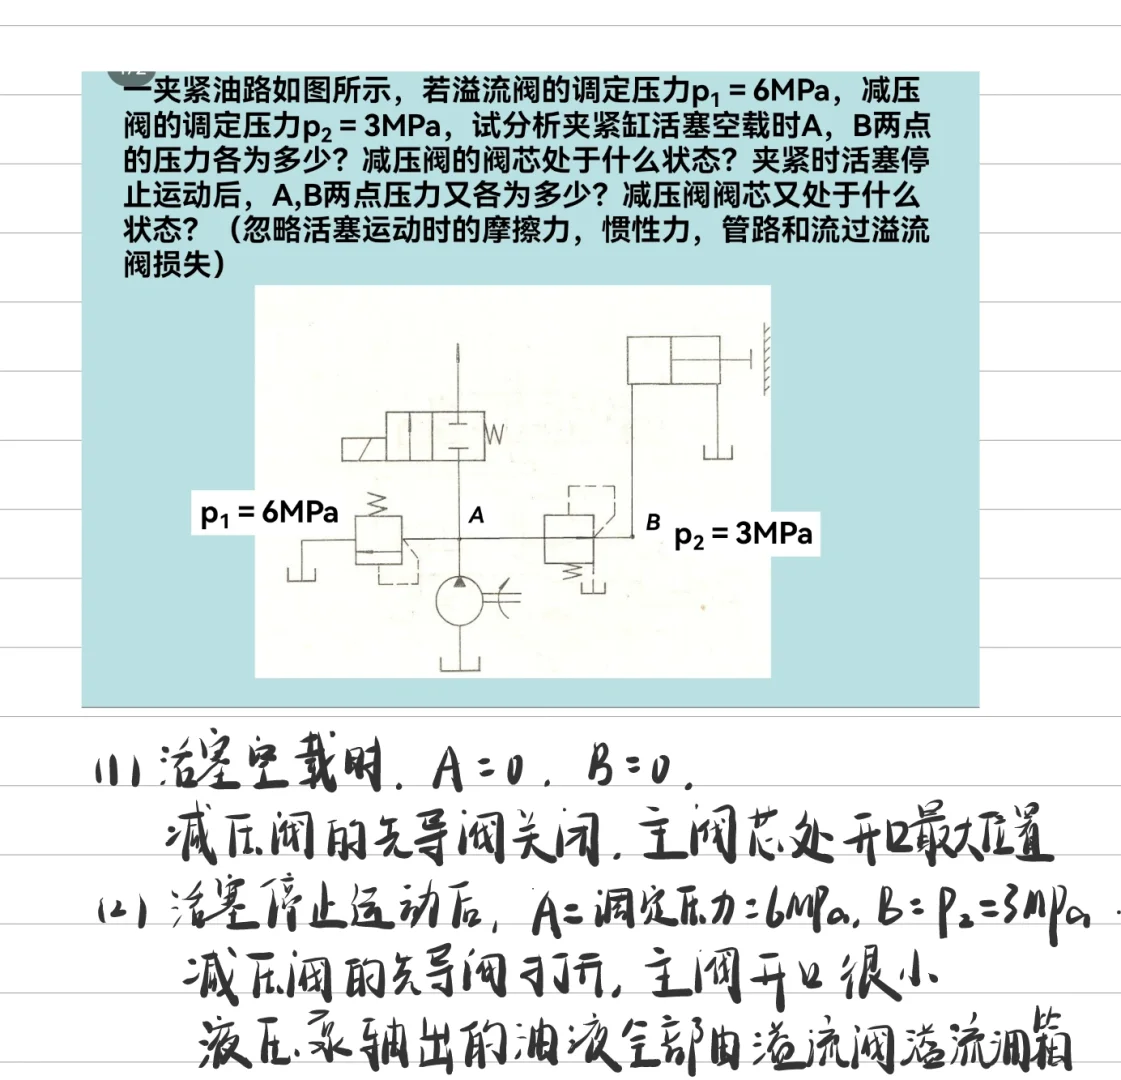 一夹紧油路如图所示，若溢流阀的调定压力p₁ = 6MPa，减压
阀的调定压力p₂ = 3MPa，试分析夹紧缸活塞空载时A，B两点
的压力各为多少？减压阀的阀芯处于什么状态？夹紧时活塞停
止运动后，A,B两点压力又各为多少？减压阀阀芯又处于什么
状态？（忽略活塞运动时的摩擦力，惯性力，管路和流过溢流
阀损失）
p₁ = 6MPa
A
B
p₂ = 3MPa
(1) 活塞空载时. A=0. B=0.
减压阀的先导阀关闭. 主阀芯处开口最大位置
(2) 活塞停止运动后, A=调定压力=6MPa, B=P₂=3MPa.
减压阀的先导阀打开, 主阀开口很小
液压泵输出的油液全部由溢流阀溢流油箱